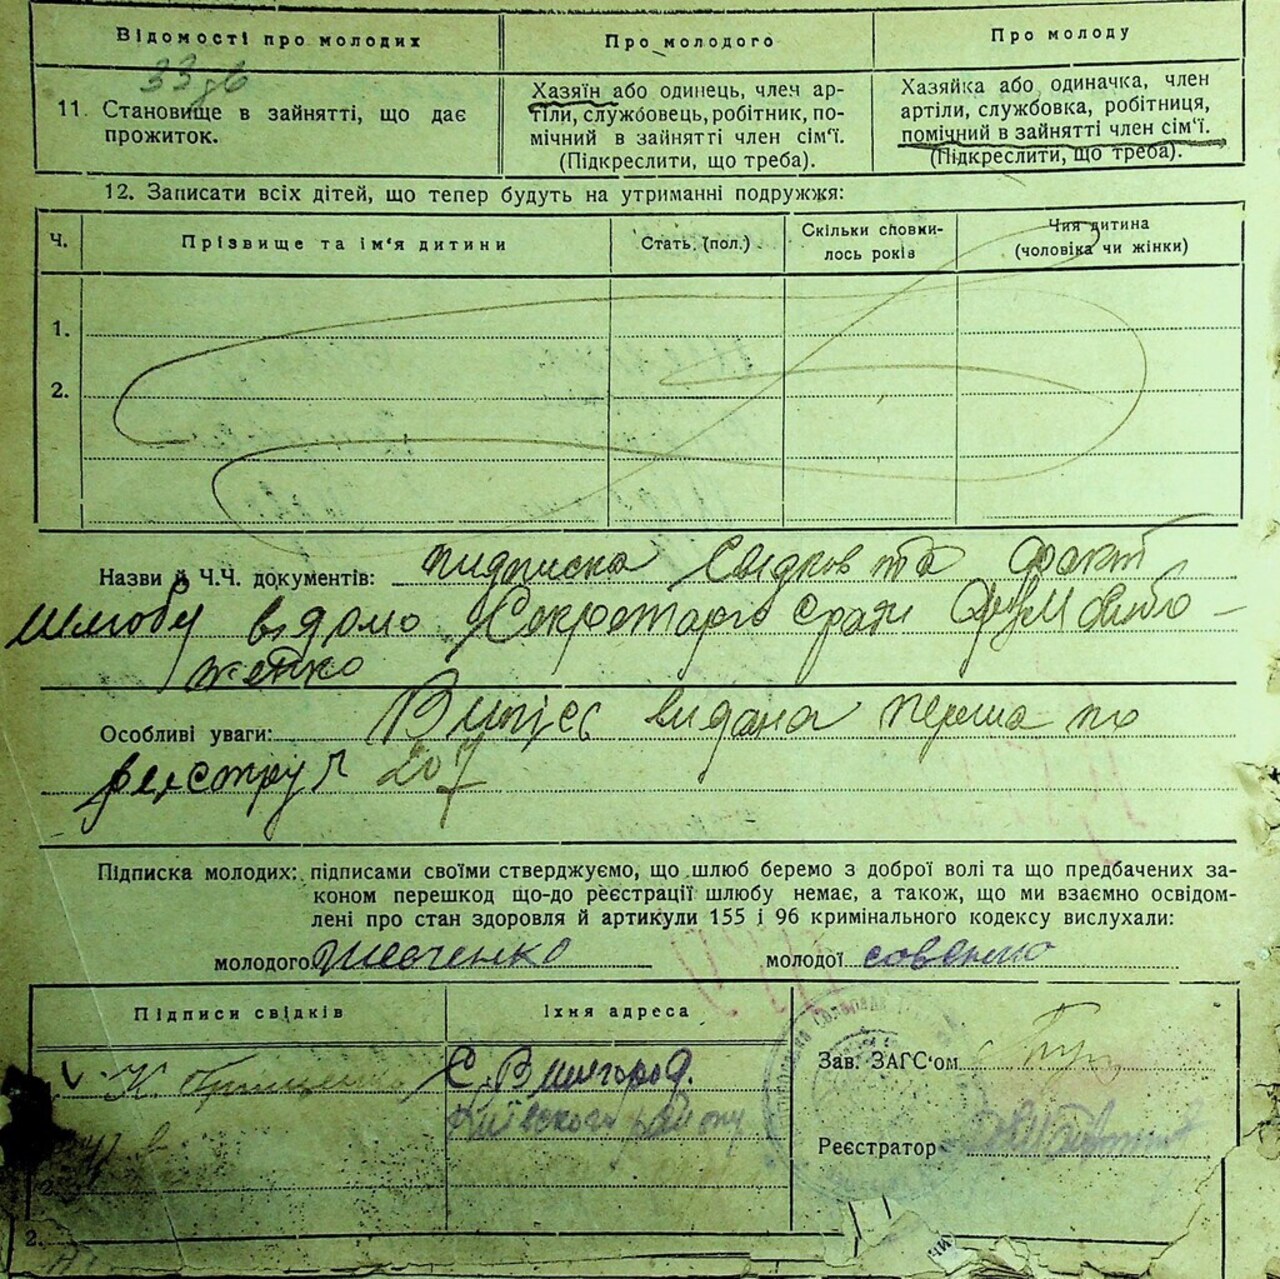 Відомості про молодих
Про молодого
Про молоду
33
11. Становище в зайнятті, що дає
прожиток.
Хазяїн або одинець, член ар-
тіли, службовець, робітник, по-
мічний в зайнятті член сім'ї.
(Підкреслити, що треба).
Хазяйка або одиначка, член
артіли, службовка, робітниця,
помічний в зайнятті член сім'ї.
(Підкреслити, що треба).
12. Записати всіх дітей, що тепер будуть на утриманні подружжя:
Ч.
Прізвище та ім'я дитини
Стать. (пол.)
Скільки сповни-
лось років
Чия дитина
(чоловіка чи жінки)
1.
2.
Назви й Ч.Ч. документів: підписка свідків та факт
шлюбу відомо Секретарю сради
Особливі уваги: Випис видана перша по
реєстру 207
Підписка молодих: підписами своїми стверджуємо, що шлюб беремо з доброї волі та що предбачених за-
коном перешкод що-до реєстрації шлюбу немає, а також, що ми взаємно освідом-
лені про стан здоровля й артикули 155 і 96 кримінального кодексу вислухали:
молодого Шевченко
молодої
Підписи свідків
Їхня адреса
К.
С. Вишгород.
Київского району
Зав. ЗАГС'ом
Реєстратор
2.